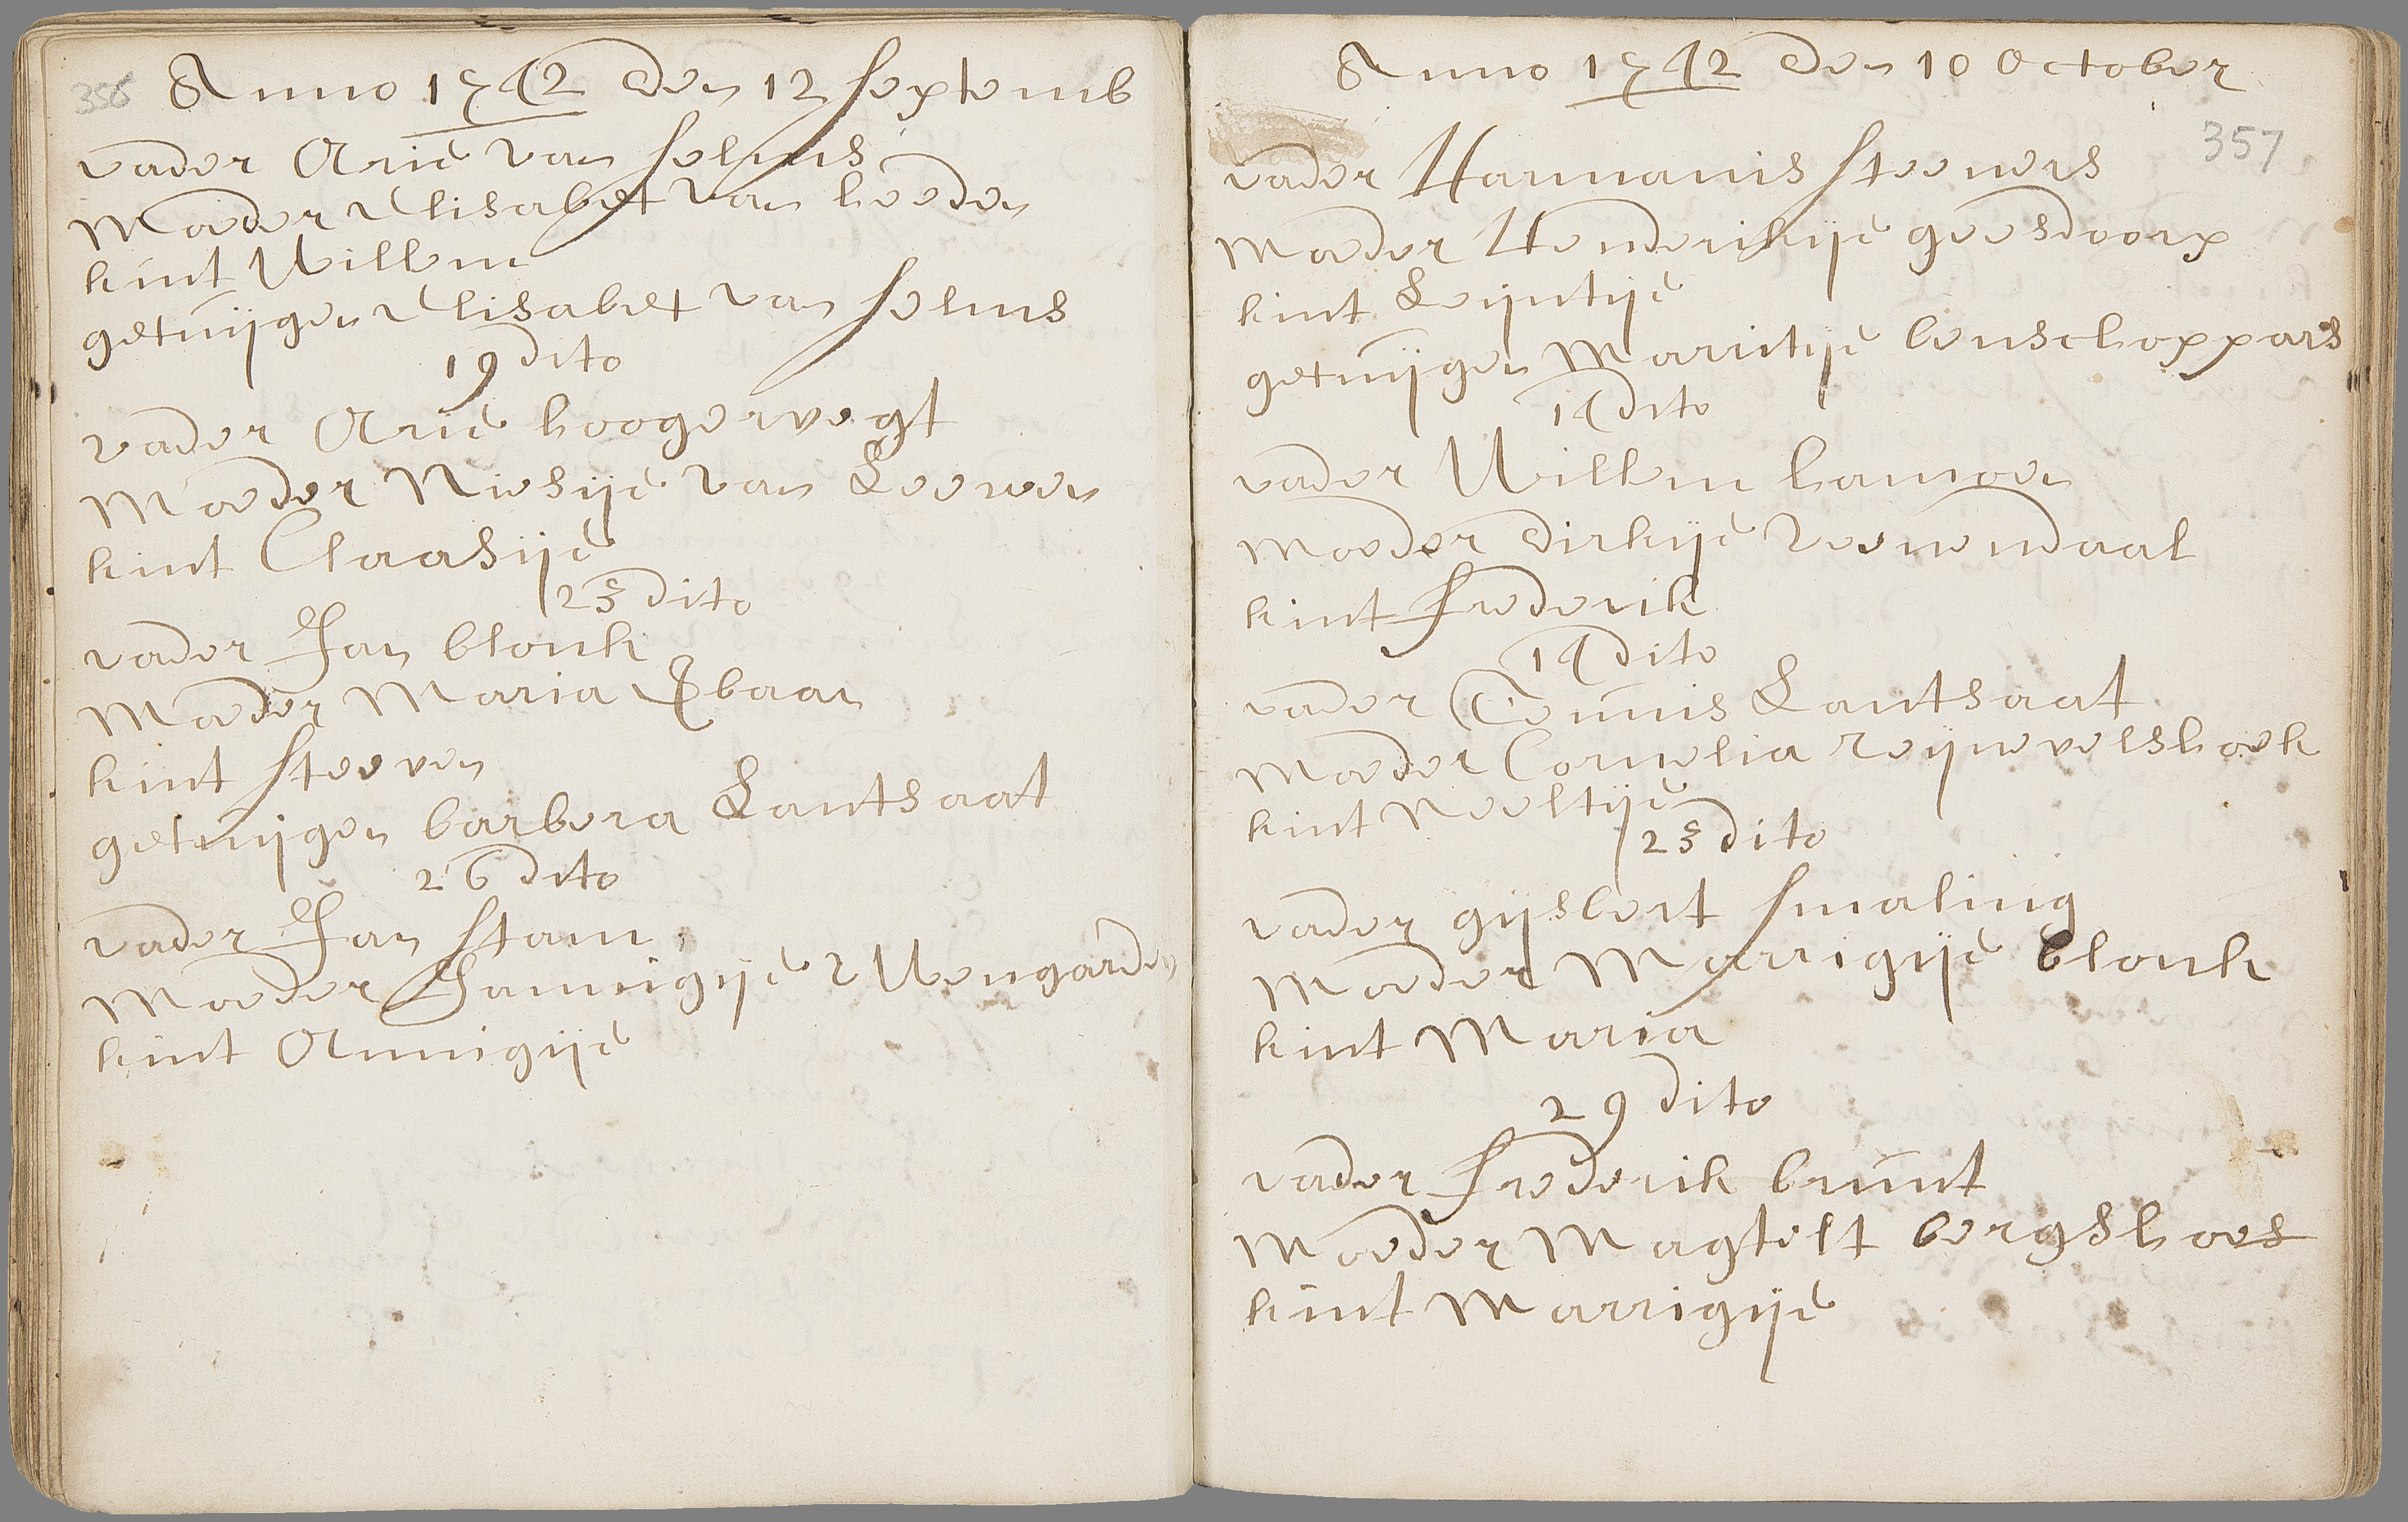 356
Anno 1742 den 12 septemb
vader Arie van solms
Moeder Elisabet van heeden
kint Willem
getuijgen Elisabet van solms
19 dito
vader Arie hoogervegt
Moeder Niesije van Leewen
kint Claasije
23 dito
vader Jan blonk
Moeder Maria Ebaar
kint steeven
getuijgen barbera Lantsaat
26 dito
vader Jan stam
Moeder Jannigije Wengarden
kint Annigije
Anno 1742 den 10 October
357
vader Harmanis steeners
Moeder Henderikije geesdoorp
kint Leijntije
getuijgen Marritije benschoppars
14 dito
vader Willem hamoen
Moeder dirkije veenendaal
kint frederik
14 dito
vader Teunis Lantsaat
Moeder Cornelia reijnevelshoek
kint Neeltije
23 dito
vader gijsbert smaling
Moeder Marrigije blonk
kint Maria
29 dito
vader frederik bruint
Moeder Magtelt bergshoef
kint Marrigije